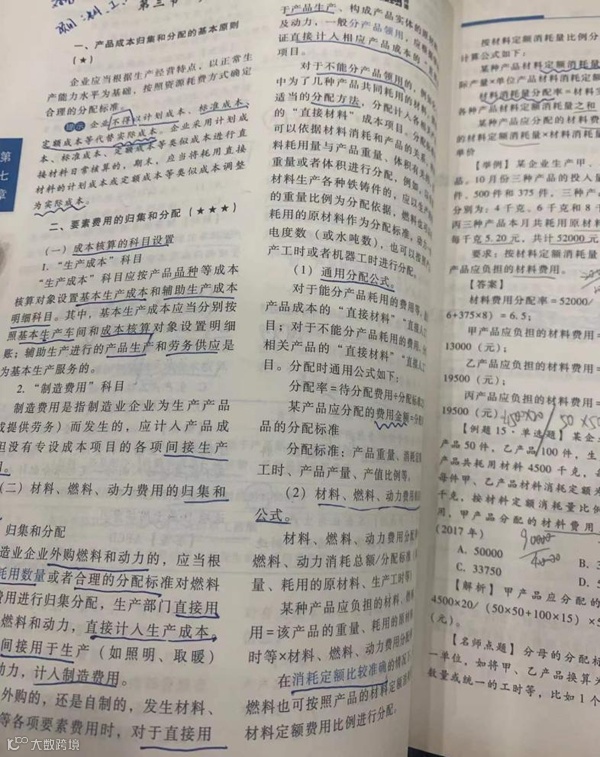 第三节
一、产品成本归集和分配的基本原则
(★)
企业应当根据生产经营特点，以正常生
产能力水平为基础，按照资源耗费方式确定
合理的分配标准。
企业不得以计划成本、标准成本、
定额成本等代替实际成本。企业采用计划成
本、标准成本、定额成本等类似成本进行直
接材料日常核算的，期末，应当将耗用直接
材料的计划成本或定额成本等类似成本调整
为实际成本。
二、要素费用的归集和分配(★★★)
(一)成本核算的科目设置
1.“生产成本”科目
“生产成本”科目应按产品品种等成本
核算对象设置基本生产成本和辅助生产成本
明细科目。其中，基本生产成本应当分别按
照基本生产车间和成本核算对象设置明细
账；辅助生产进行的产品生产和劳务供应是
为基本生产服务的。
2.“制造费用”科目
制造费用是指制造业企业为生产产品
或提供劳务)而发生的，应计入产品成
但没有专设成本项目的各项间接生产
(二)材料、燃料、动力费用的归集和
归集和分配
造业企业外购燃料和动力的，应当根
耗用数量或者合理的分配标准对燃料
费用进行归集分配，生产部门直接用
燃料和动力，直接计入生产成本
间接用于生产(如照明、取暖)
动力，计入制造费用。
外购的，还是自制的，发生材料、
等各项要素费用时，对于直接用
第七章
于产品生产、构成产品实体的
及动力，一般分产品领用，应
证直接计入相应产品成本的
项目。
对于不能分产品领用的
中为了几种产品共同耗用的
适当的分配方法，分配计入各
的“直接材料”成本项目。分配
可以依据材料消耗和产品的关系
料耗用量与产品重量、体积有关
重量或者体积进行分配，例如，
材料生产各种铁铸件的，应以生
的重量比例为分配依据，燃料
耗用的原材料作为分配标准，
电度数(或水吨数)，也可以按
产工时或者机器工时进行分配。
(1)通用分配公式。
对于能分产品耗用的费用等
产品成本的“直接材料”“直接人工
目；对于不分产品耗用的费用
相关产品的“直接材料”“直接人工
目。分配时通用公式如下：
分配率=待分配费用÷分配标
某产品应分配的费用金额=分
品的分配标准
分配标准：产品重量、消耗
工时、产品产量、产值比例等。
(2)材料、燃料、动力费用
公式。
材料、燃料、动力费用分配
燃料、动力消耗总额/分配标准
量、耗用的原材料、生产工时等)
某种产品应负担的材料、
用=该产品的重量、耗用的原材
时等×材料、燃料、动力费用分配
在消耗定额比较准确的情况下
燃料也可按照产品的材料定额消
材料定额费用比例进行分配。
按材料定额消耗量比例分
计算公式如下：
某种产品材料定额消耗量
际产量×单位产品材料消耗定额
材料消耗量分配率=材料实
各种产品材料定额消耗量之和
某种产品应分配的材料费用
的材料定额消耗量×材料消耗量
单价
【举例】某企业生产甲、
品。10月份三种产品的投入量
件、500件和375件，三种产
分别为：4千克、6千克和8千
丙三种产品本月共耗用原材料
每千克5.20元，共计52000元
要求：按材料定额消耗量
产品应负担的材料费用。
【答案】
材料费用分配率=52000/
6+375×8)=6.5；
甲产品应负担的材料费用=
13000(元)；
乙产品应负担的材料费用=
19500(元)；
丙产品应负担的材料费用=
19500(元)。
【例题15·单选题】某企
产品50件，乙产品100件，生
产品共耗用材料4500千克，
每件甲、乙产品材料消耗定额为
千克，按材料定额消耗量比例
用，甲产品分配的材料费用
(2017年)
A. 50000
B.
C. 33750
D.
【解析】甲产品应分配的
4500×20/(50×50+100×15)×5
(元)。
【名师点题】分母的分配标
一单位，如将甲、乙产品换算为
数量或统一的工时等，比如1个
大数跨境